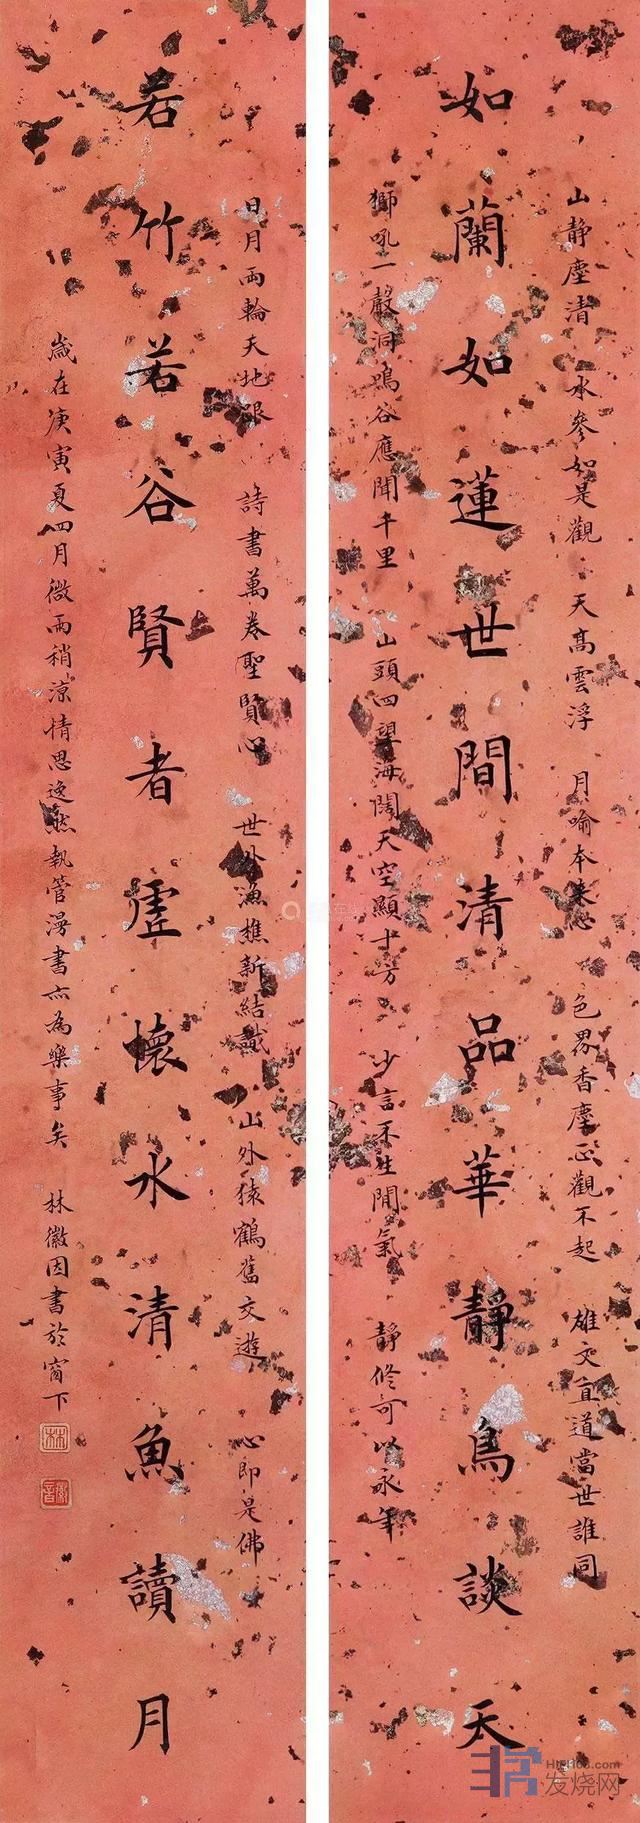 山靜塵清 水參如是觀 天高雲浮 月喻本來心 色界香塵正觀不起 雄文直道當世誰同
如蘭如蓮世間清品華靜鳥談天
獅吼一聲洞鳴谷應聞千里 山頭四望海闊天空顯十方 少言不生閒氣 靜修可以永年
日月兩輪天地眼 詩書萬卷聖賢心 世外漁樵新結識 山外猿鶴舊交遊 心即是佛
若竹若谷賢者虛懷水清魚讀月
歲在庚寅夏四月微雨稍涼情思逸然執管漫書亦為樂事矣 林徽因書於窗下
林
徽音
HIFI168.com
发烧网